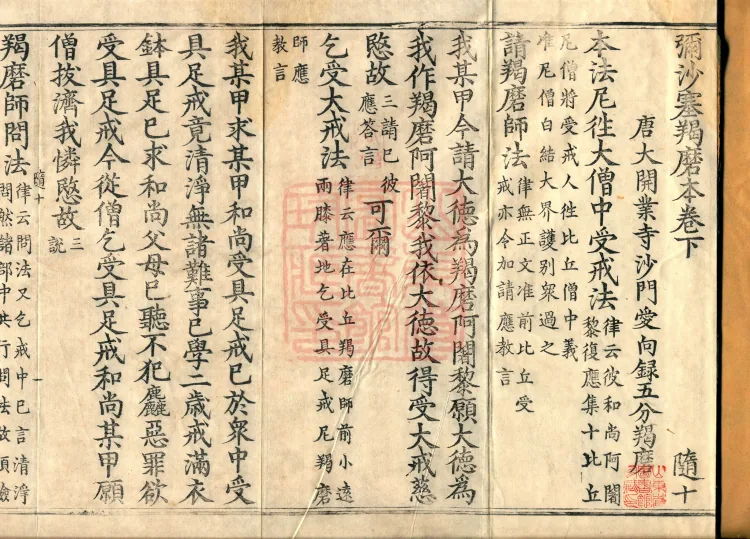 彌沙塞羯磨本卷下
唐大開業寺沙門愛向録五分羯磨 隨十
本法尼徃大僧中受戒法
律云彼和尚阿闍
黎復應集十比丘
尼僧將受戒人徃比丘僧中義
准尼僧白結大界護别衆過之
請羯磨師法
律無正文准前比丘受
戒亦令加請應教言
我某甲今請大德為羯磨阿闍黎願大德為
我作羯磨阿闍黎我依大德故得受大戒慈
愍故
三請已彼
應答言
可爾
乞受大戒法
律云應在比丘羯磨師前小遠
兩膝著地乞受具足戒尼羯磨
師應
教言
我某甲求某甲和尚受具足戒已於衆中受
具足戒竟清淨無諸難事已學二歲戒滿衣
鉢具足已求和尚父母已聽不犯麤惡罪欲
受具足戒今從僧乞受具足戒和尚某甲願
僧拔濟我憐愍故
三
説
隨十
羯磨師問法
律云問法又乞戒中已言清淨
問然諸部中共行問法故須